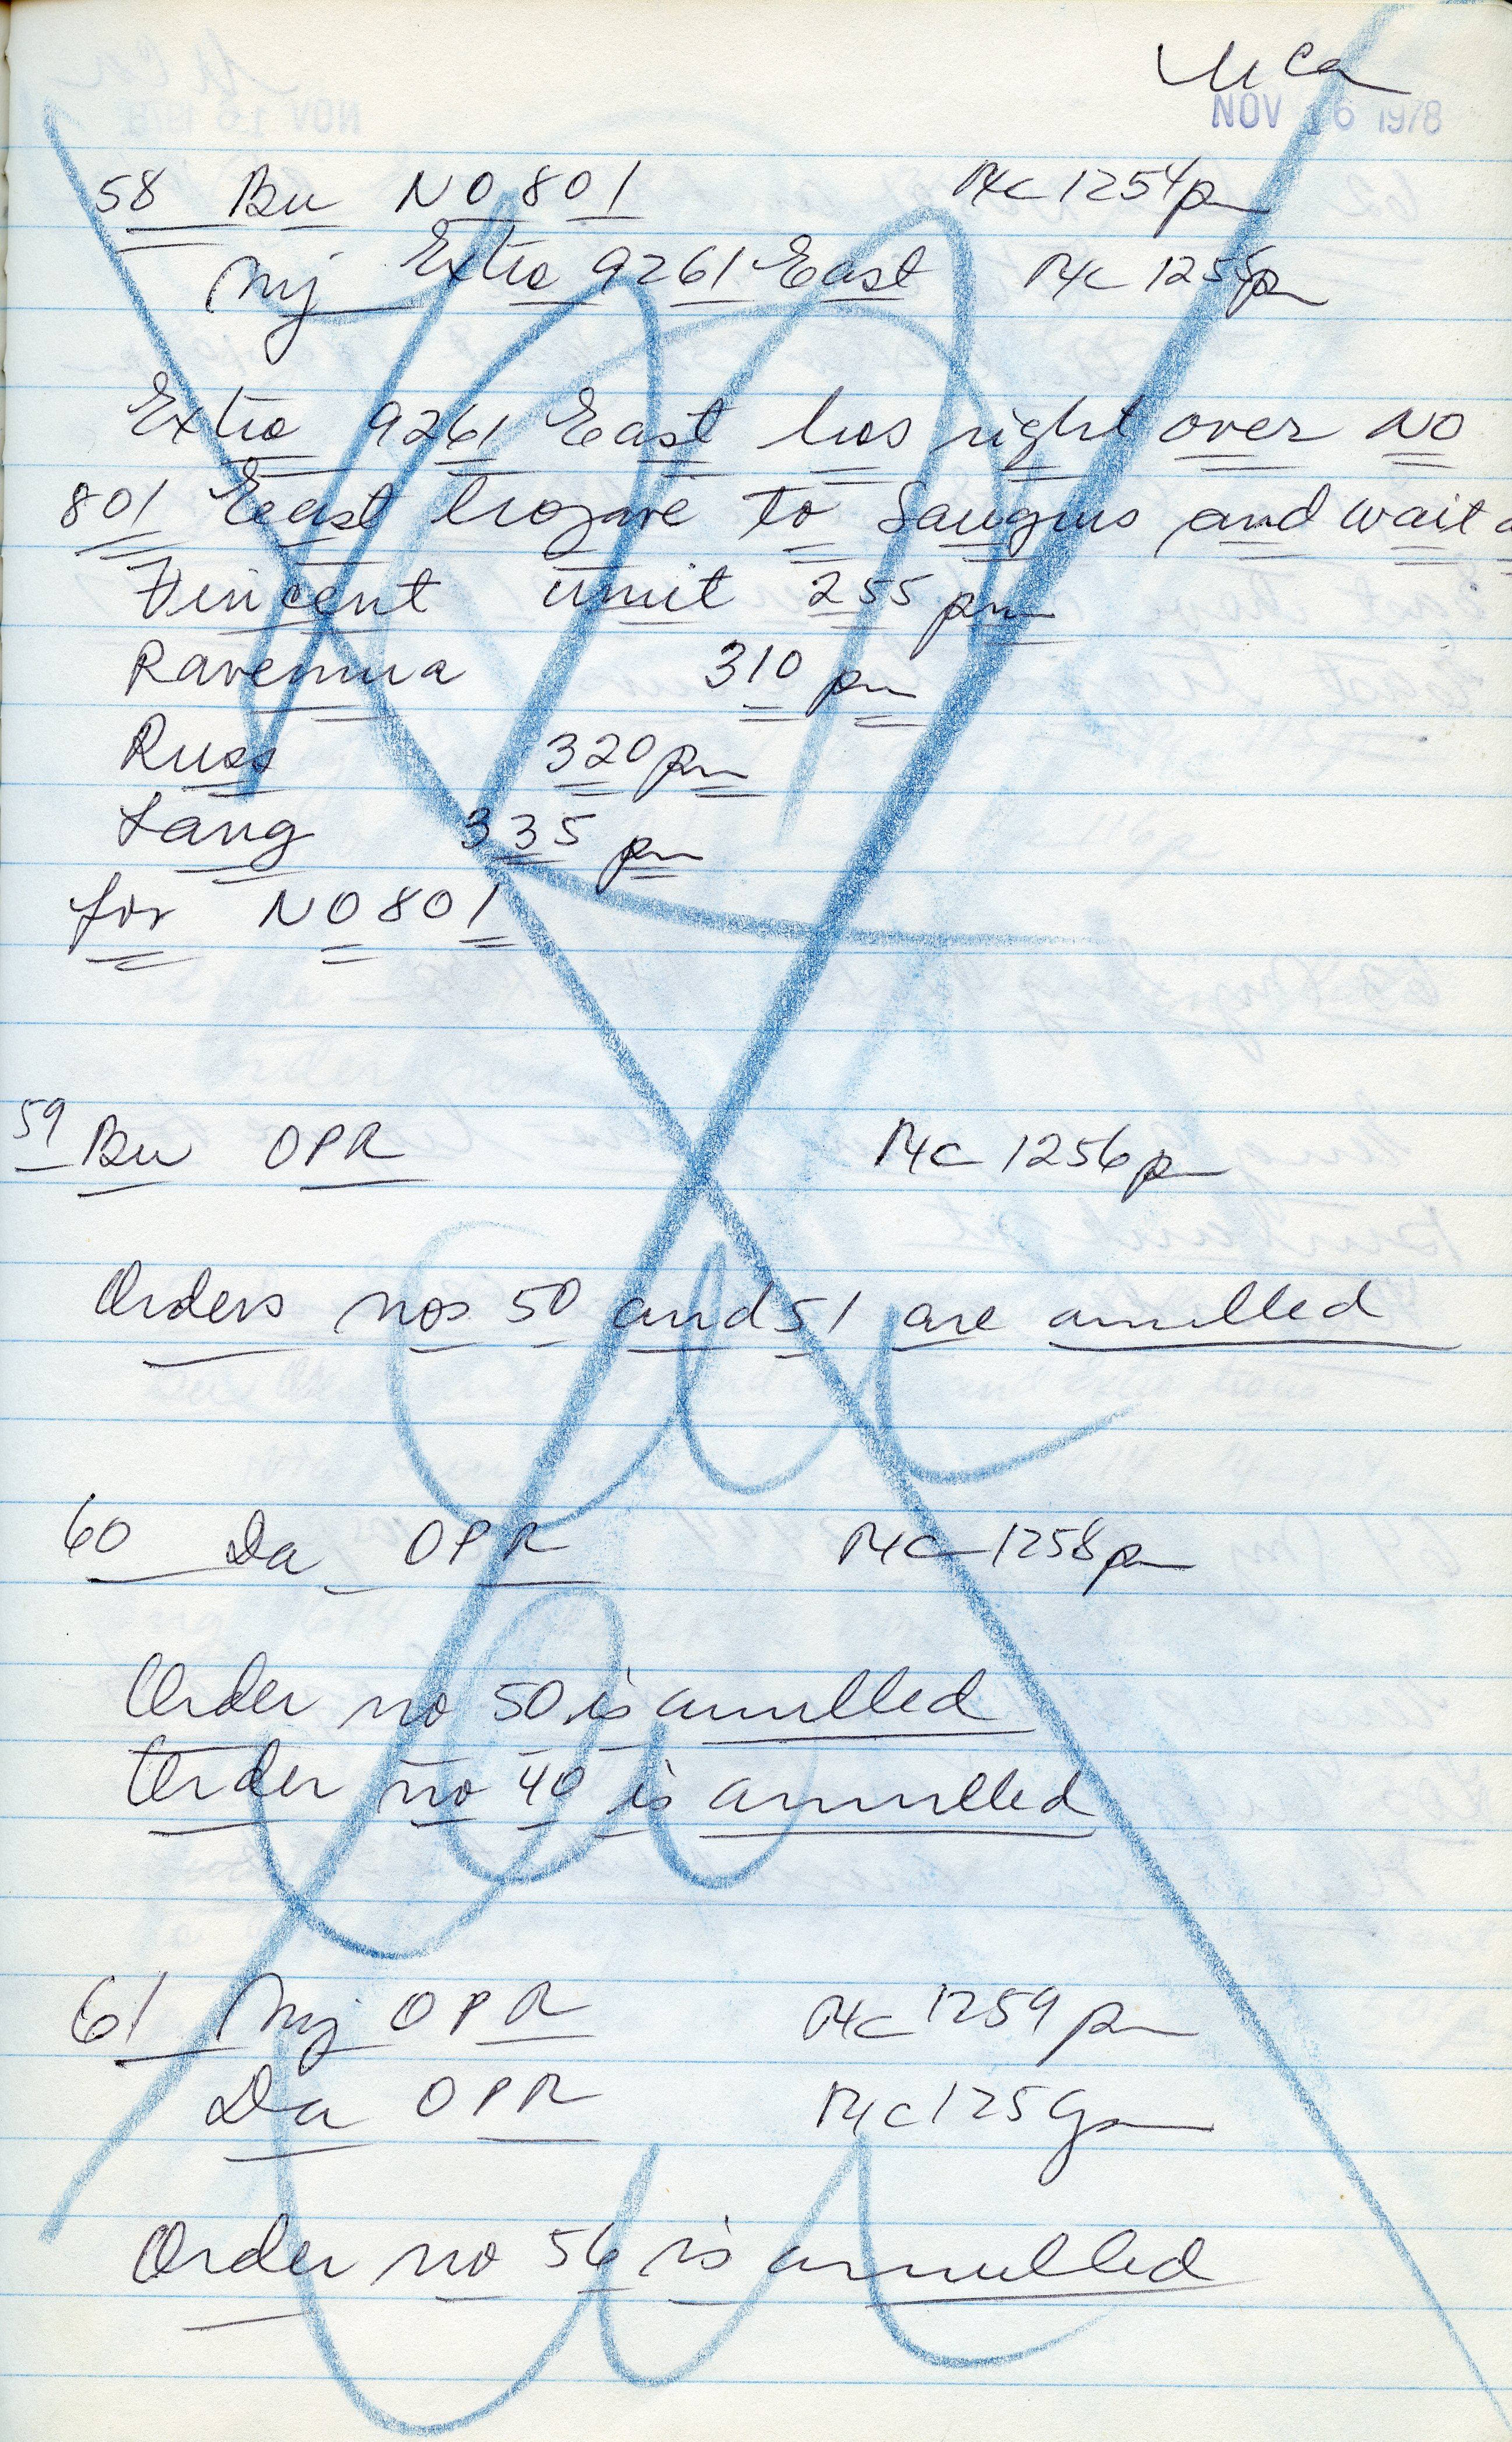 MCA
NOV 16 1978
58 Bu NO 801 MC 1254pm
Mj Extra 9261 East MC 1255pm
Extra 9261 East has right over NO
801 East Mojave to Saugus and wait a
Vincent until 255 pm
Ravenna 310 pm
Russ 320 pm
Lang 335 pm
for NO 801
59 Bu OPR MC 1256pm
Orders nos 50 and 51 are annulled
60 Da OPR MC 1258pm
Order no 50 is annulled
Order no 40 is annulled
61 Mj OPR MC 1259 pm
Da OPR MC 1259pm
Order no 56 is annulled